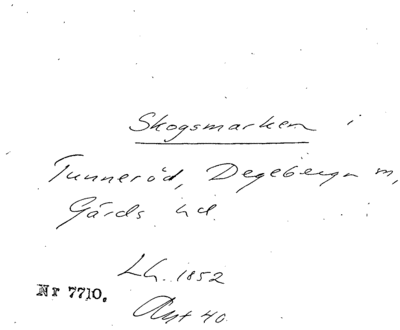 Skogsmarken i
Tunneröd, Degeberga m,
Gärds hd.
Lh. 1852
Nr 7710.
Akt 40